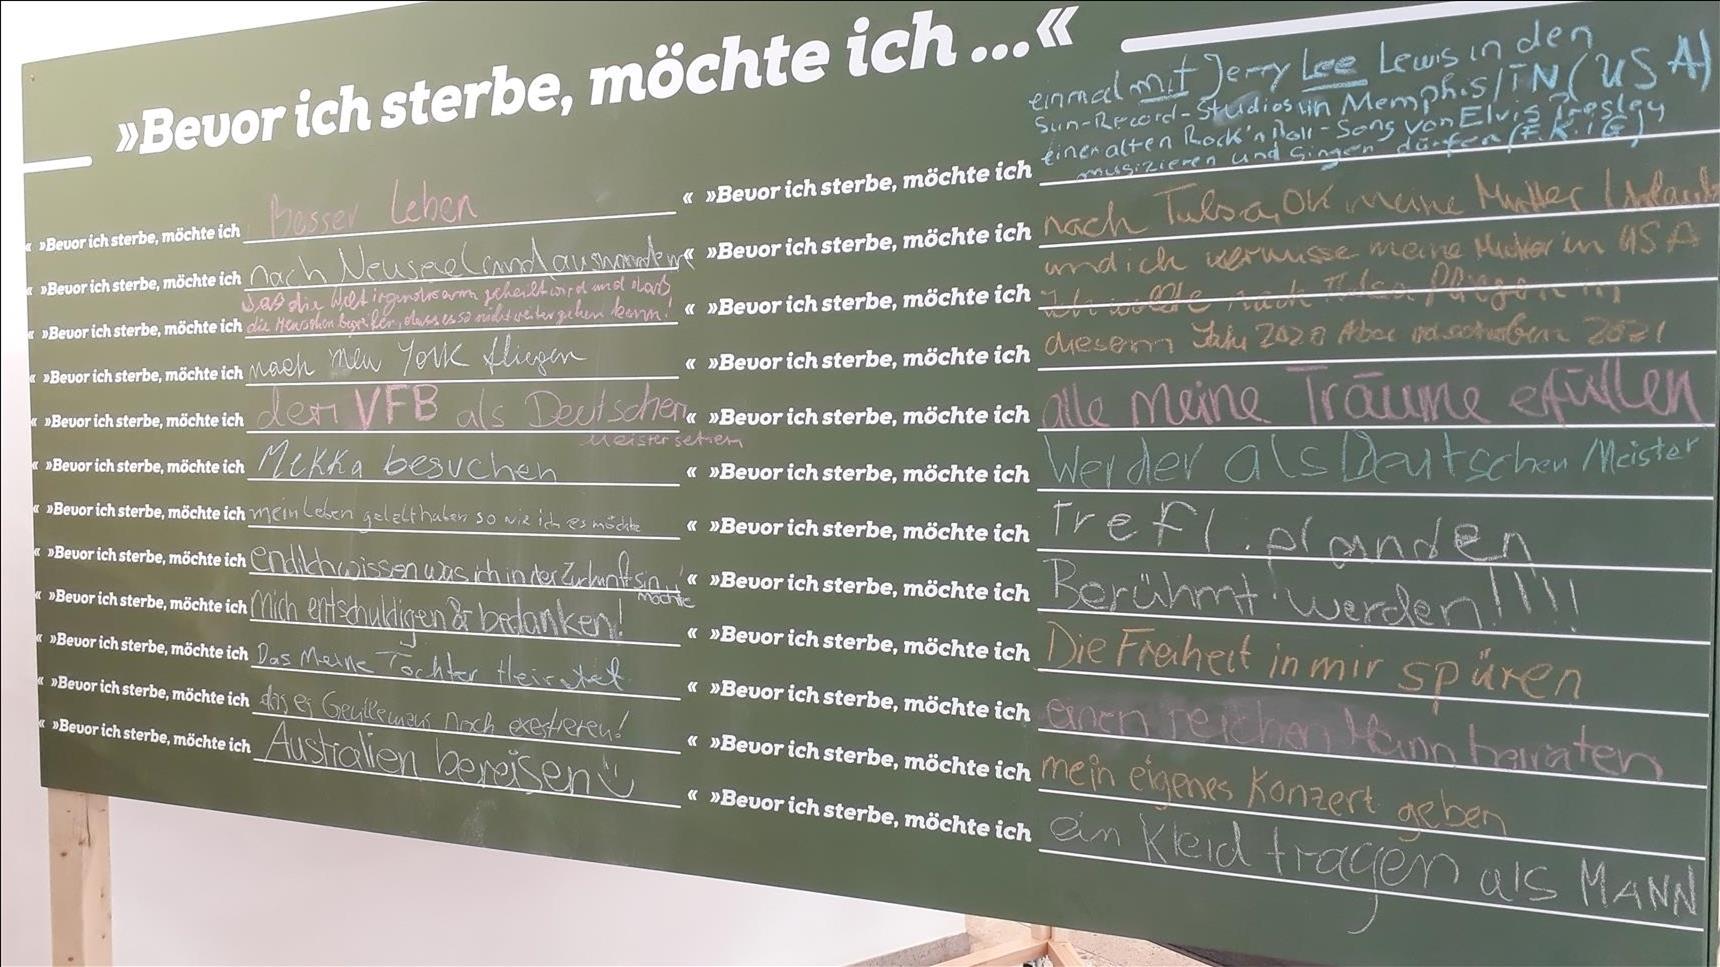 »Bevor ich sterbe, möchte ich ...«
»Bevor ich sterbe, möchte ich Besser Leben «
»Bevor ich sterbe, möchte ich nach Neuseeland auswandern «
»Bevor ich sterbe, möchte ich das die Welt irgendwann geheilt wird und dass
die Menschen begreifen, dass es so nicht weiter gehen kann! «
»Bevor ich sterbe, möchte ich nach New York fliegen «
»Bevor ich sterbe, möchte ich den VFB als Deutschen «
Meister sehen
»Bevor ich sterbe, möchte ich Mekka besuchen «
»Bevor ich sterbe, möchte ich mein Leben gelebt haben so wie ich es möchte «
»Bevor ich sterbe, möchte ich endlich wissen was ich in der Zukunft sin «
möchte
»Bevor ich sterbe, möchte ich mich entschuldigen & bedanken! «
»Bevor ich sterbe, möchte ich Das Meine Töchter Heiratet «
»Bevor ich sterbe, möchte ich das es noch existieren! «
»Bevor ich sterbe, möchte ich Australien bereisen «
einmal mit Jerry Lee Lewis in den
Sun-Record-Studios in Memphis/TN (USA)
einen alten Rock'n Roll-Song von Elvis Presley
»Bevor ich sterbe, möchte ich musizieren und Singen dürfen (F.K. i G)
»Bevor ich sterbe, möchte ich nach Tulsa, OK meine Mutter
und ich vermisse meine Mutter in USA
»Bevor ich sterbe, möchte ich Ich wollte nach Tulsa fliegen in
»Bevor ich sterbe, möchte ich diesem Jahr 2020 Aber verschoben 2021
»Bevor ich sterbe, möchte ich alle meine Träume efüllen
»Bevor ich sterbe, möchte ich Werder als Deutschen Meister
»Bevor ich sterbe, möchte ich
»Bevor ich sterbe, möchte ich Berühmt werden!!!!!
»Bevor ich sterbe, möchte ich Die Freiheit in mir spüren
»Bevor ich sterbe, möchte ich einen reichen Mann heiraten
»Bevor ich sterbe, möchte ich mein eigenes Konzert geben
»Bevor ich sterbe, möchte ich ein Kleid tragen als MANN